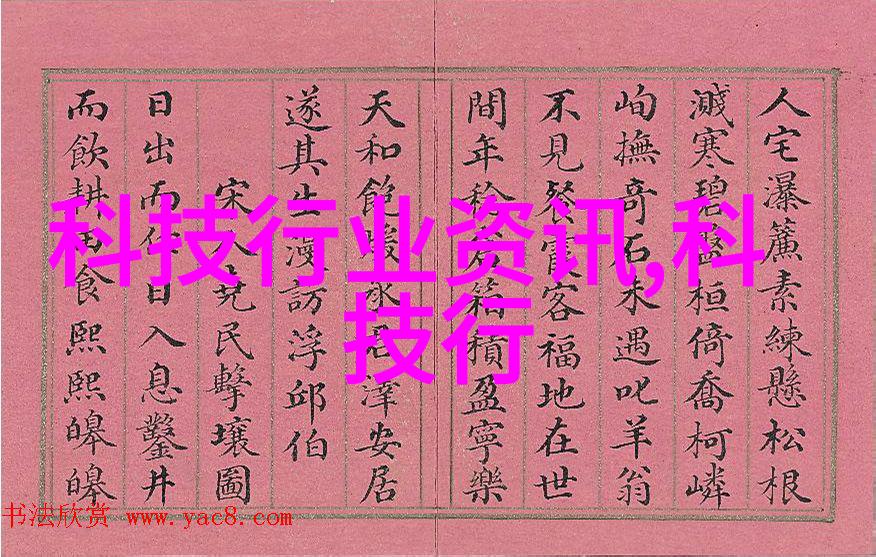 人宅瀑簾素練懸松根
濺寒碧盤桓倚喬柯嶙
峋撫竒石未遇叱羊翁
不見餐霞客福地在世
間年箱積盈寧樂
天和飽暖澤安居
遂其生漫訪浮邱伯
宋人堯民擊壤圖
日出而作日入息鑿井
而飲耕田食熙熙皞皞
科技行业资讯,科
技行
书法欣赏 www.yac8.com